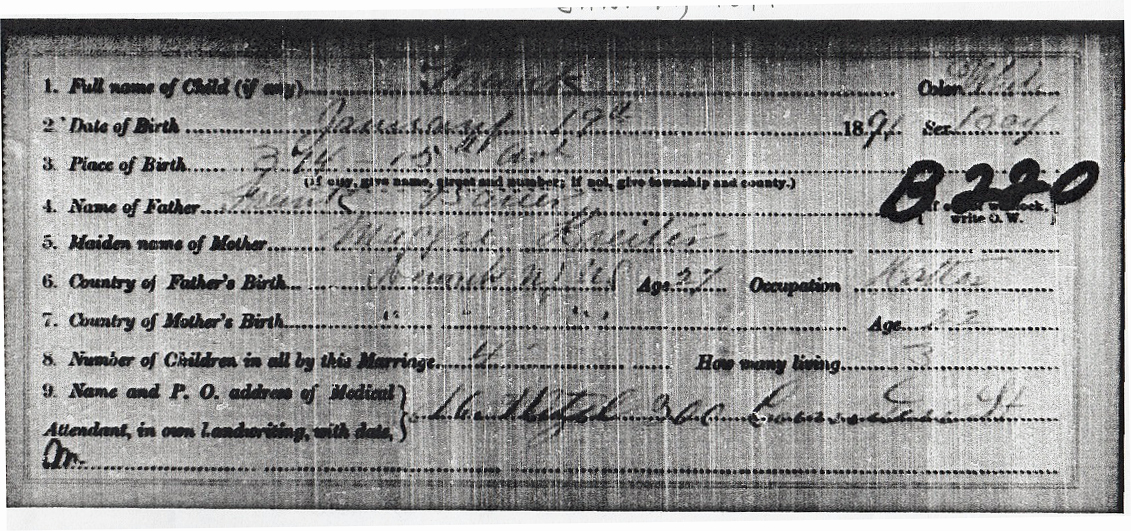 1. Full name of Child (if any) Frank Color White
2. Date of Birth January 19th 1891 Sex Boy
3. Place of Birth 374 - 15th Ave
(If city, give name, street and number; if not, give township and county.)
B220
4. Name of Father Frank Bauer
write O. W.
5. Maiden name of Mother Kreiter
6. Country of Father's Birth Newark N.J. Age 27 Occupation Hatter
7. Country of Mother's Birth " " " Age 22
8. Number of Children in all by this Marriage 4 How many living 3
9. Name and P. O. address of Medical
Attendant, in own handwriting, with date, 360 St